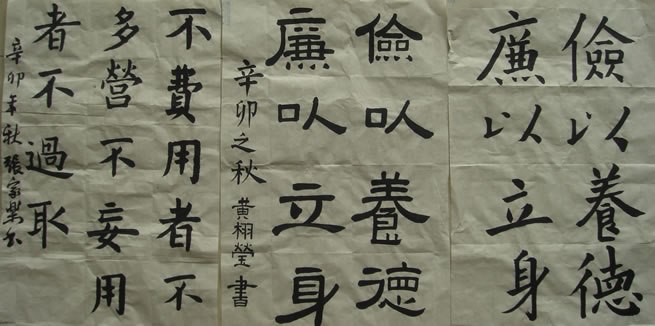 儉以養德
廉以立身
儉以養德
廉以立身
辛卯之秋 黄栩瑩書
不費用者不
多營不妄用
者不過取
辛卯年秋張